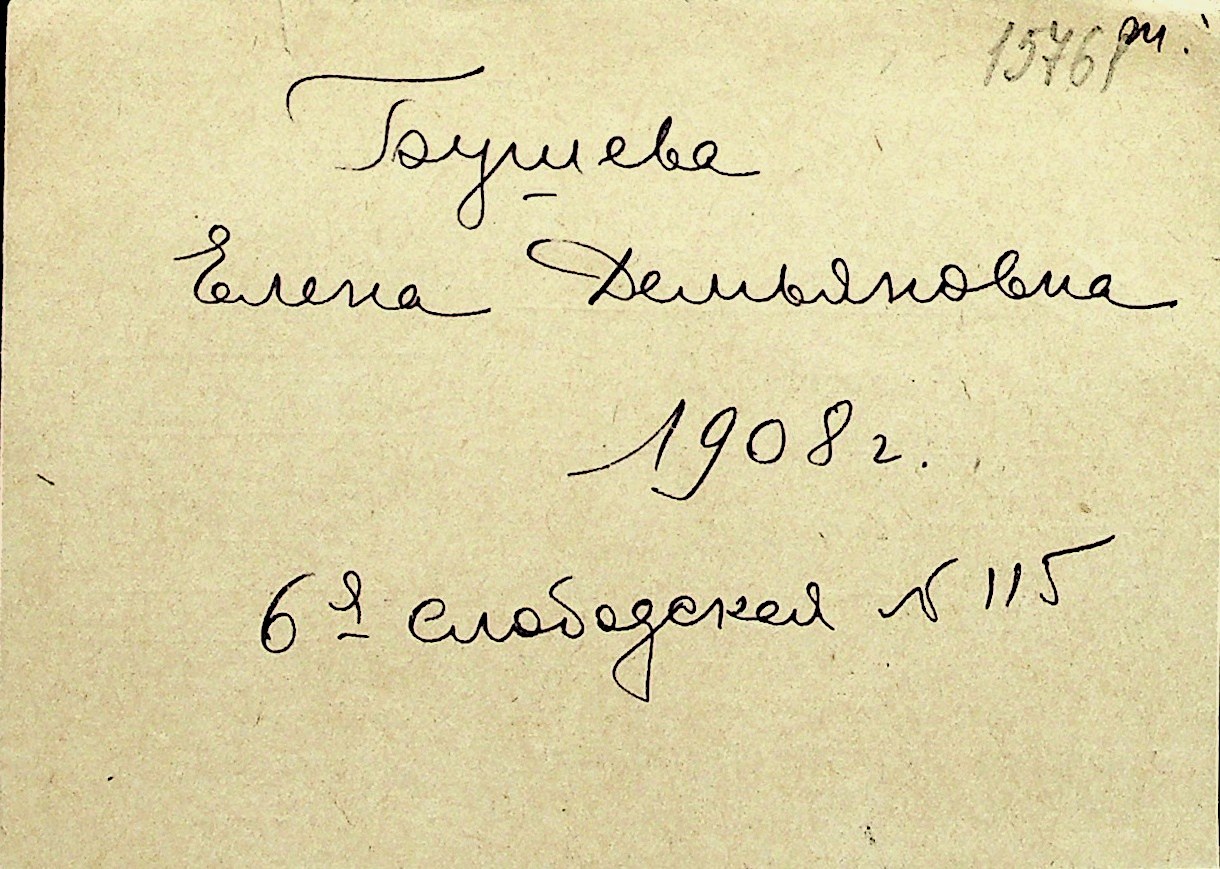 1576 т.
Бушева
Елена Демьяновна
1908 г.
6я слободская № 115